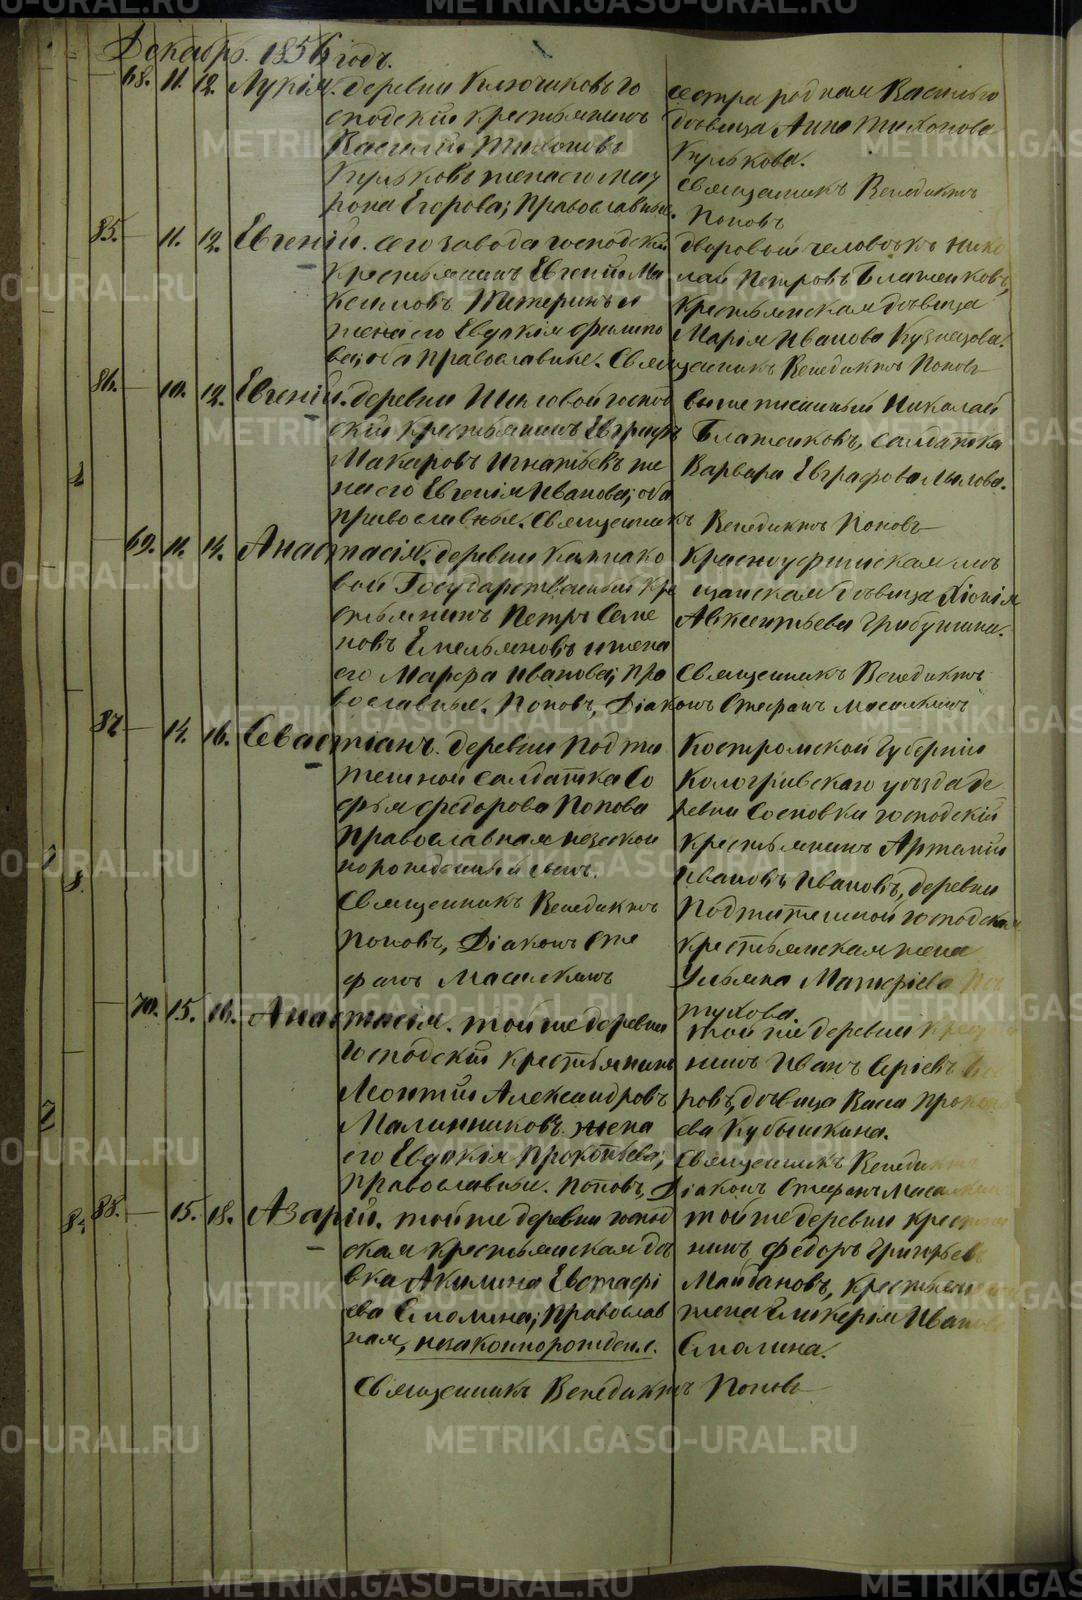 Декабрь 1856 годъ.
68. 11. 12. Лукія. деревни Ключиковъ го
сподскій крестьянинъ
Василій Тихоновъ
Кульковъ жена его Мат
рона Егорова; православные.
сестра родная Василья
дѣвица Анна Тихонова
Кулькова.
Священникъ Венедиктъ
Поповъ
85. 11. 12. Евгеній. сего завода господскій
крестьянинъ Евгеній Ма
ксимовъ Тетеринъ и
жена его Евдокія Филипо
ва; оба православные. Священникъ Венедиктъ Поповъ
дворовый человѣкъ Нико
лай Петровъ Блаженковъ,
крестьянская дѣвица
Марія Иванова Кузнецова.
86. 10. 12. Евгеній. деревни господ
скій крестьянинъ Евграфъ
Макаровъ Игнатьевъ же
на его Евгенія Иванова; оба
православные. Священникъ Венедиктъ Поповъ
вышеписанный Николай
Блаженковъ, солдатка
Варвара Евграфова Мылова.
69. 11. 12. Анастасія. деревни Колпако
вой Государственный кре
стьянинъ Петръ Семе
новъ Емельяновъ и жена
его Марфа Иванова; пра
вославные. Поповъ, Діаконъ Стефанъ
Красноуфимская мѣ
щанская дѣвица Хіонія
Авксентьева Грибушина.
Священникъ Венедиктъ
87. 14. 16. Севастіанъ. деревни
солдатка Со
фья Федорова Попова
православная незакон
норожденный сынъ.
Священникъ Венедиктъ
Поповъ, Діаконъ Сте
фанъ
Костромской Губерніи
Кологривскаго уѣзда де
ревни Сосновки господскій
крестьянинъ Артемій
Ивановъ Ивановъ, деревни
господская
крестьянская жена
Ульяна
70. 15. 16. Анастасія. той же деревни
господскій крестьянинъ
Леонтій Александровъ
Малинниковъ жена
его Евдокія Прокопьева;
православные. Поповъ, Діаконъ Стефанъ
той же деревни
Иванъ
дѣвица Васса
Кубышкина.
Священникъ Венедиктъ
88. 15. 18. Азарій. той же деревни господ
ская крестьянская дѣ
вка Акилина Евстафі
ева Смолина; православ
ная, незаконнорожден.
Священникъ Венедиктъ Поповъ
той же деревни
нинъ Федоръ Григорьевъ
Майдановъ,
жена Гликерія Иванова
Смолина.
METRIKI.GASO-URAL.RU